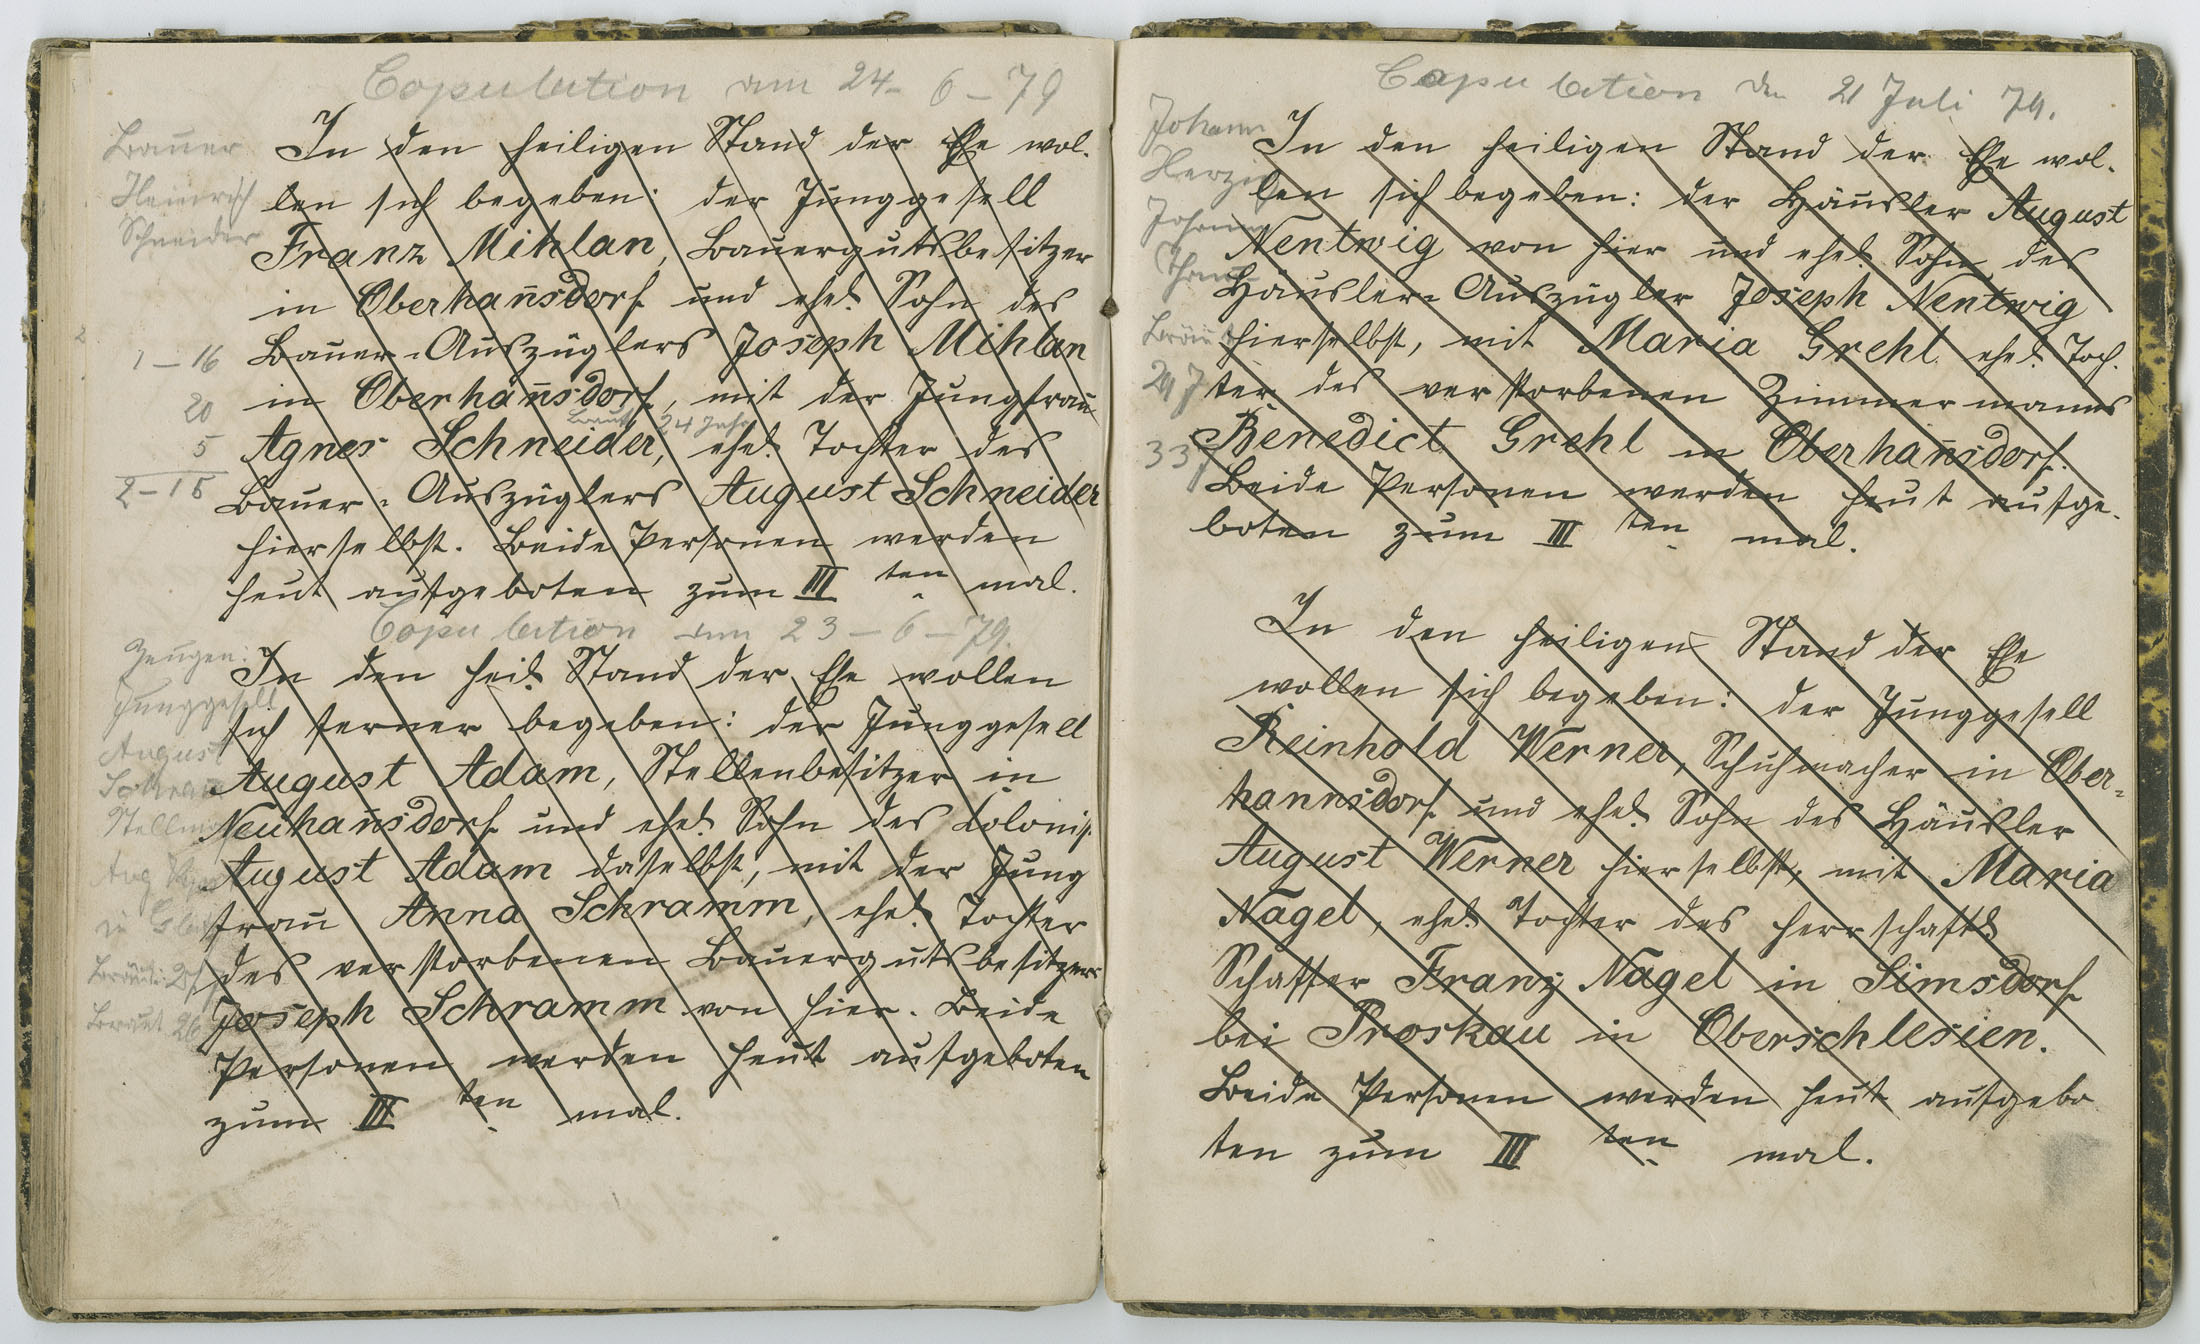 Copulation am 24-6-79
Bauer
Heinrich
Schneider
In den heiligen Stand der Ehe wol-
len sich begeben: der Junggesell
Franz Mihlan, Bauergutsbesitzer
in Oberhan̄sdorf und ehel. Sohn des
Bauer-Auszüglers Joseph Mihlan
in Oberhan̄sdorf, mit der Jungfrau
Braut 24 Jahr
Agnes Schneider, ehel. Tochter des
Bauer-Auszüglers August Schneider
hierselbst. Beide Personen werden
heut aufgeboten zum III ten mal.
1-16
20
5
2-15
Copulation am 23-6-79.
Zeugen:
Junggesell
August
Schramm
Stellm
Aug
in
Bräut:
Braut 26
In den heil. Stand der Ehe wollen
sich ferner begeben: der Junggesell
August Adam, Stellenbesitzer in
Neuhan̄sdorf und ehel. Sohn des Colonist
August Adam daselbst, mit der Jung
frau Anna Schramm, ehel. Tochter
des verstorbenen Bauergutsbesitzers
Joseph Schramm von hier. Beide
Personen werden heut aufgeboten
zum III ten mal.
Copulation den 21 Juli 79.
Johann
Herzig
Johann
Bräut
29 J
33 J
In den heiligen Stand der Ehe wol-
len sich begeben: der Häusler August
Nentwig von hier und ehel. Sohn des
Häusler-Auszügler Joseph Nentwig
hierselbst, mit Maria Grehl ehel. Toch-
ter des verstorbenen Zimmermanns
Benedict Grehl in Oberhan̄sdorf.
Beide Personen werden heut aufge-
boten zum III ten mal.
In den heiligen Stand der Ehe
wollen sich begeben: der Junggesell
Reinhold Werner, Schuhmacher in Ober-
hannsdorf und ehel. Sohn des Häusler
August Werner hierselbst, mit Maria
Nagel, ehel. Tochter des herrschaftl.
Schaffer Franz Nagel in Simsdorf
bei Proskau in Oberschlesien.
Beide Personen werden heut aufgebo
ten zum III ten mal.